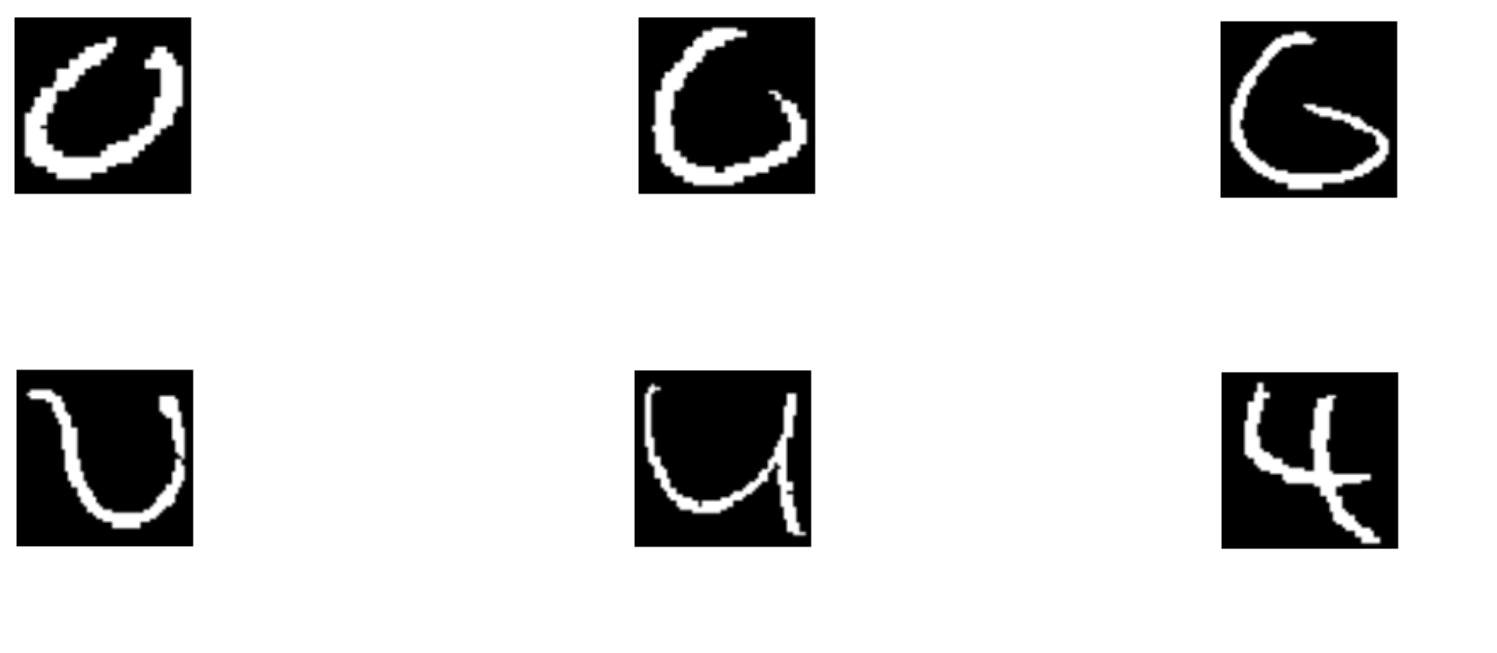 0 6 6
U 4 4